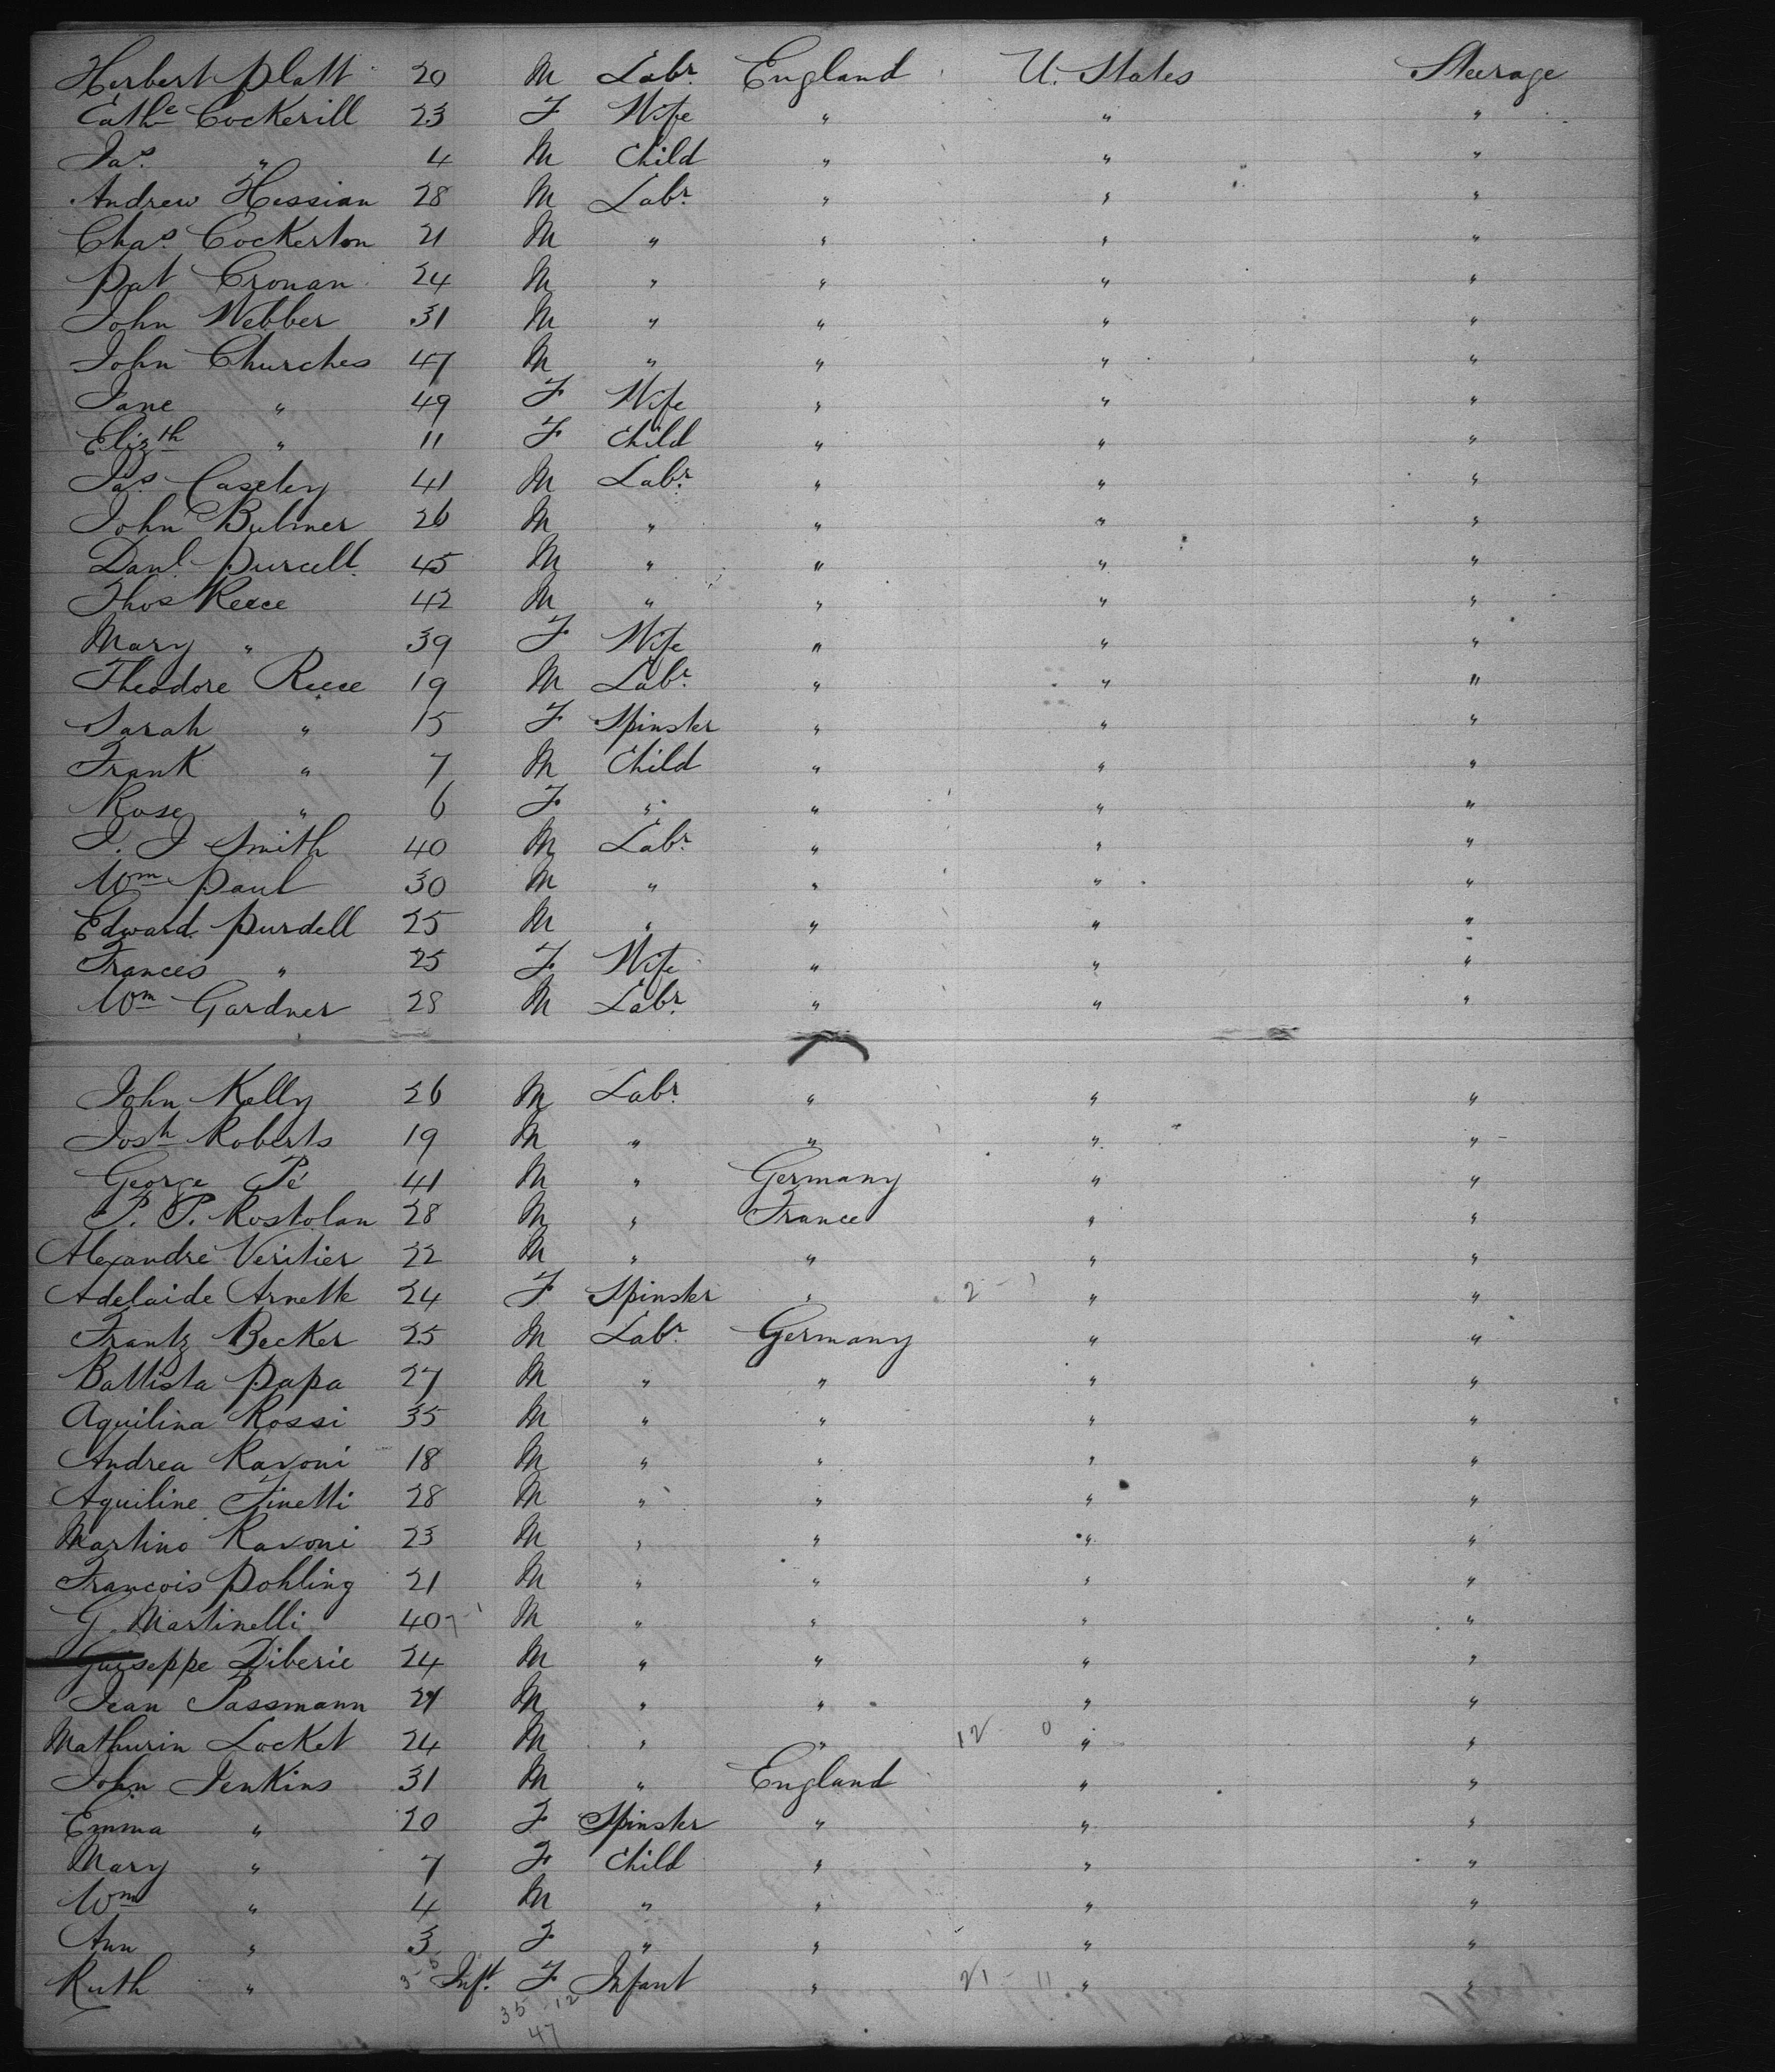 Herbert Platt 20 M Labr. England U. States Steerage
Cathe Cockerill 23 F Wife " " "
Jas. " 4 M Child " " "
Andrew Hessian 28 M Labr. " " "
Chas. Cockerton 21 M " " " "
Pat Cronan 24 M " " " "
John Webber 31 M " " " "
John Churches 47 M " " " "
Jane " 49 F Wife " " "
Elizth " 11 F Child " " "
Jas. Caseley 41 M Labr. " " "
John Bulmer 26 M " " " "
Danl. Purcell 45 M " " " "
Thos Reece 42 M " " " "
Mary " 39 F Wife " " "
Theodore Reece 19 M Labr. " " "
Sarah " 15 F Spinster " " "
Frank " 7 M Child " " "
Rose " 6 F " " " "
J. J Smith 40 M Labr. " " "
Wm Paul 30 M " " " "
Edward Purdell 25 M " " " "
Frances " 25 F Wife " " "
Wm Gardner 28 M Labr. " " "
John Kelly 26 M Labr. " " "
Josh Roberts 19 M " " " "
George Pé 41 M " Germany " "
P. P. Rostolan 28 M " France " "
Alexandre Veritier 22 M " " " "
Adelaide Arnette 24 F Spinster " 2 - 1 " "
Frantz Becker 25 M Labr. Germany " "
Battista Papa 27 M " " " "
Aquilina Rossi 35 M " " " "
Andrea Ravoni 18 M " " " "
Aquiline Tinetti 28 M " " " "
Martino Ravoni 23 M " " " "
Francois Pohling 21 M " " " "
G. Martinelli 40 M " " " "
Guiseppe Diberie 24 M " " " "
Jean Passmann 21 M " " " "
Mathurin Locket 24 M " " 12 0 " "
John Jenkins 31 M " England " "
Emma " 20 F Spinster " " "
Mary " 7 F Child " " "
Wm " 4 M " " " "
Ann " 3 F " " " "
Ruth " Inft. F Infant " 21 - 11 " "
35 - 12
47